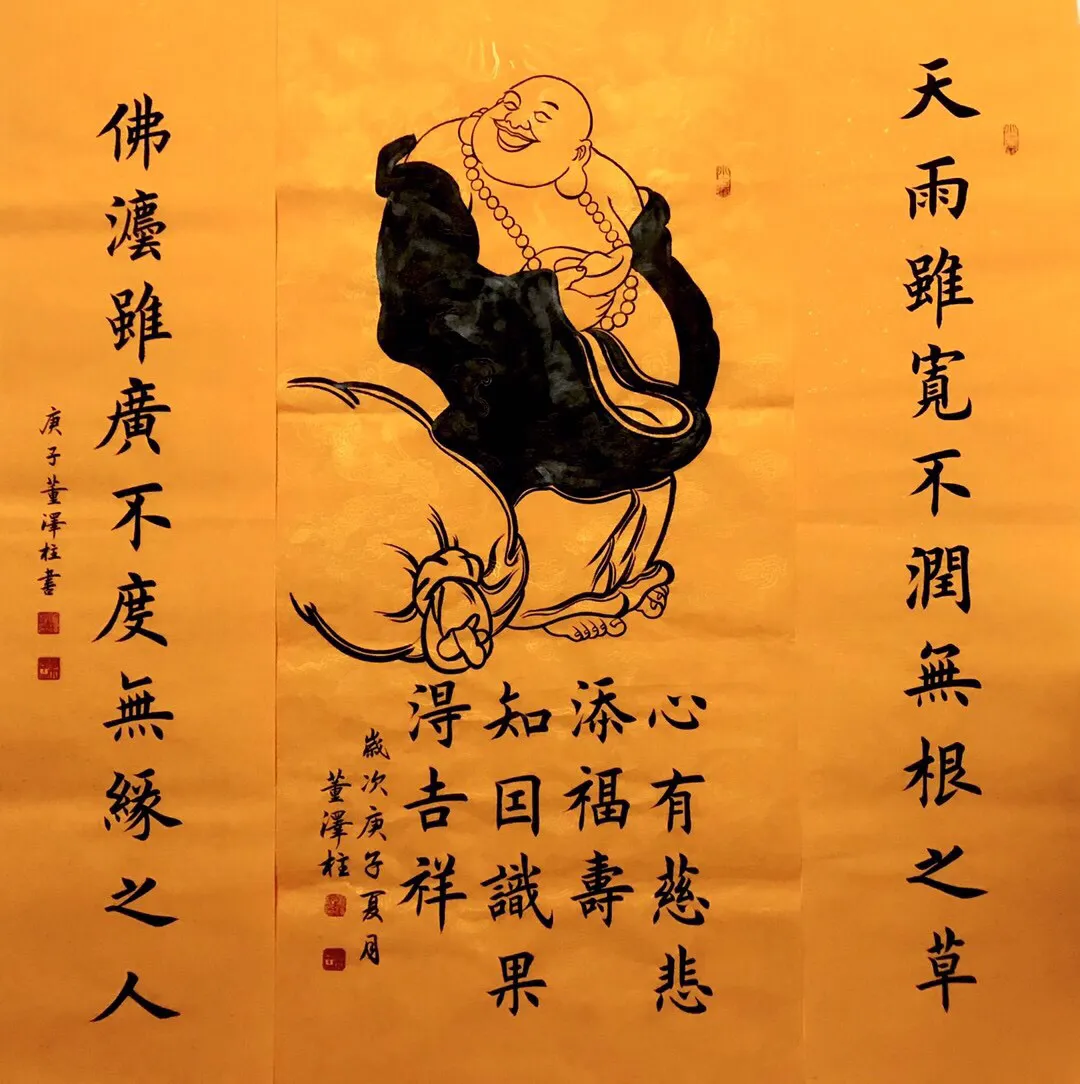 天雨雖寬不潤無根之草
心有慈悲
添福壽
知囙識果
淂吉祥
歲次庚子夏月
董澤柱
佛灋雖廣不度無緣之人
庚子董澤柱書